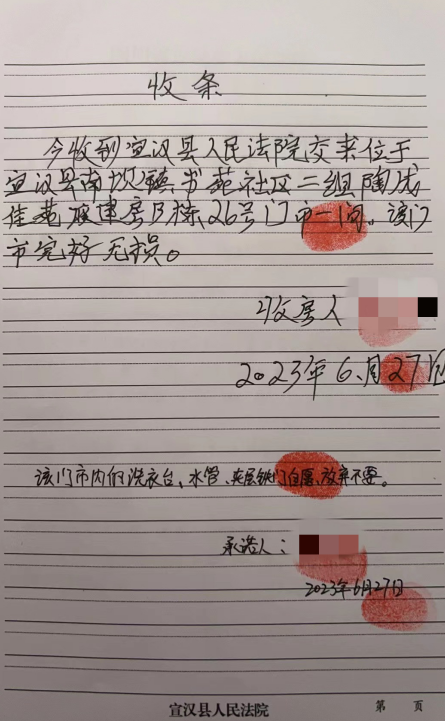 收条
今收到宣汉县人民法院交来位于
宣汉县南坝镇书苑社区二组陶成
佳苑 建房B栋26号门市一间。该门
市完好无损。
收房人
2023年6月27日
该门市内的洗衣台、水管、夹层铁门自愿放弃不要。
承诺人：
2023年6月27日
宣汉县人民法院
第 页